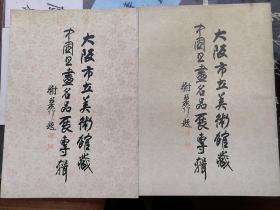 大阪市立美術館藏
中國书畫名品展專輯
題
大阪市立美術館藏
中國书畫名品展專輯
題